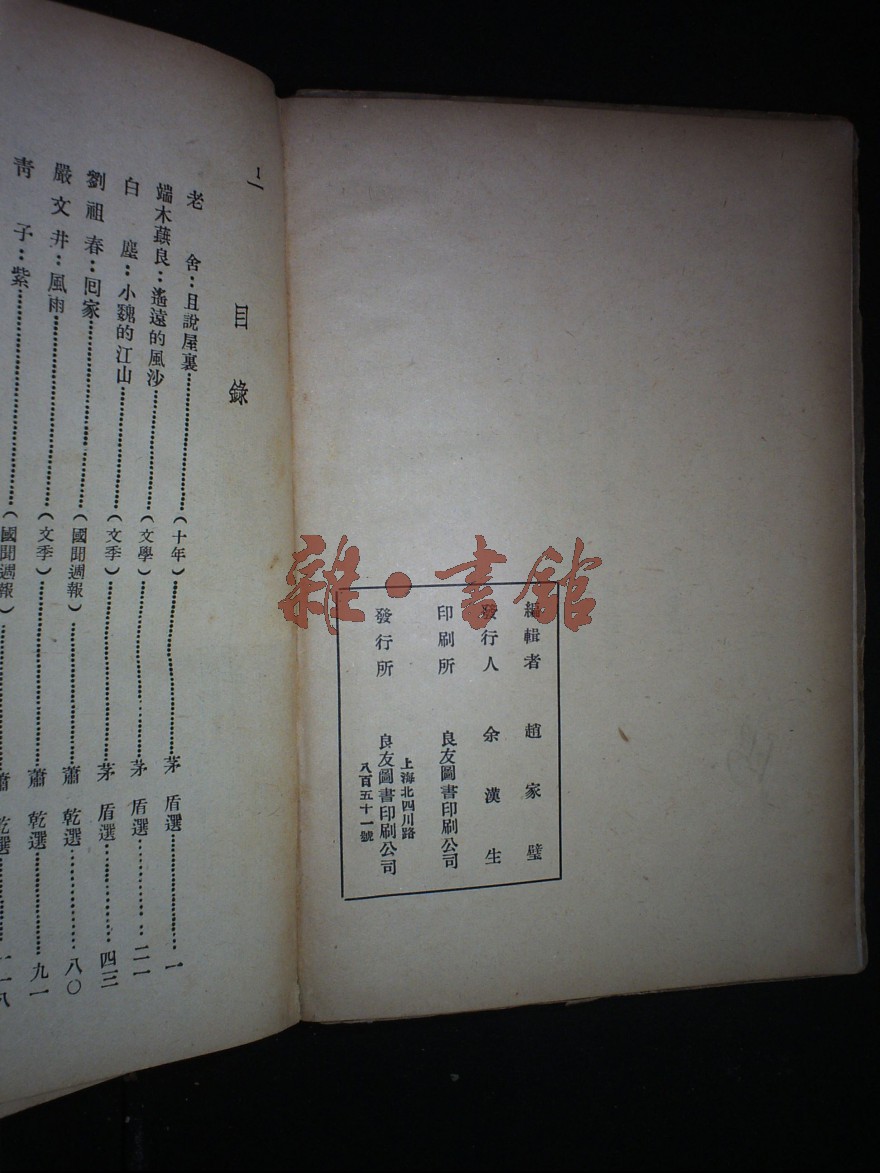 編輯者 趙家璧
發行人 余漢生
印刷所 良友圖書印刷公司
發行所 上海北四川路 良友圖書印刷公司 八百五十一號
雜·書館
1
目錄
老舍:且說屋裏………(十年)………茅盾選………一
端木蕻良:遙遠的風沙………(文學)………茅盾選………二一
白塵:小魏的江山………(文季)………茅盾選………四三
劉祖春:囘家………(國聞週報)………蕭乾選………八〇
嚴文井:風雨………(文季)………蕭乾選………九一
青子:紫………(國聞週報)………蕭乾選………一一八